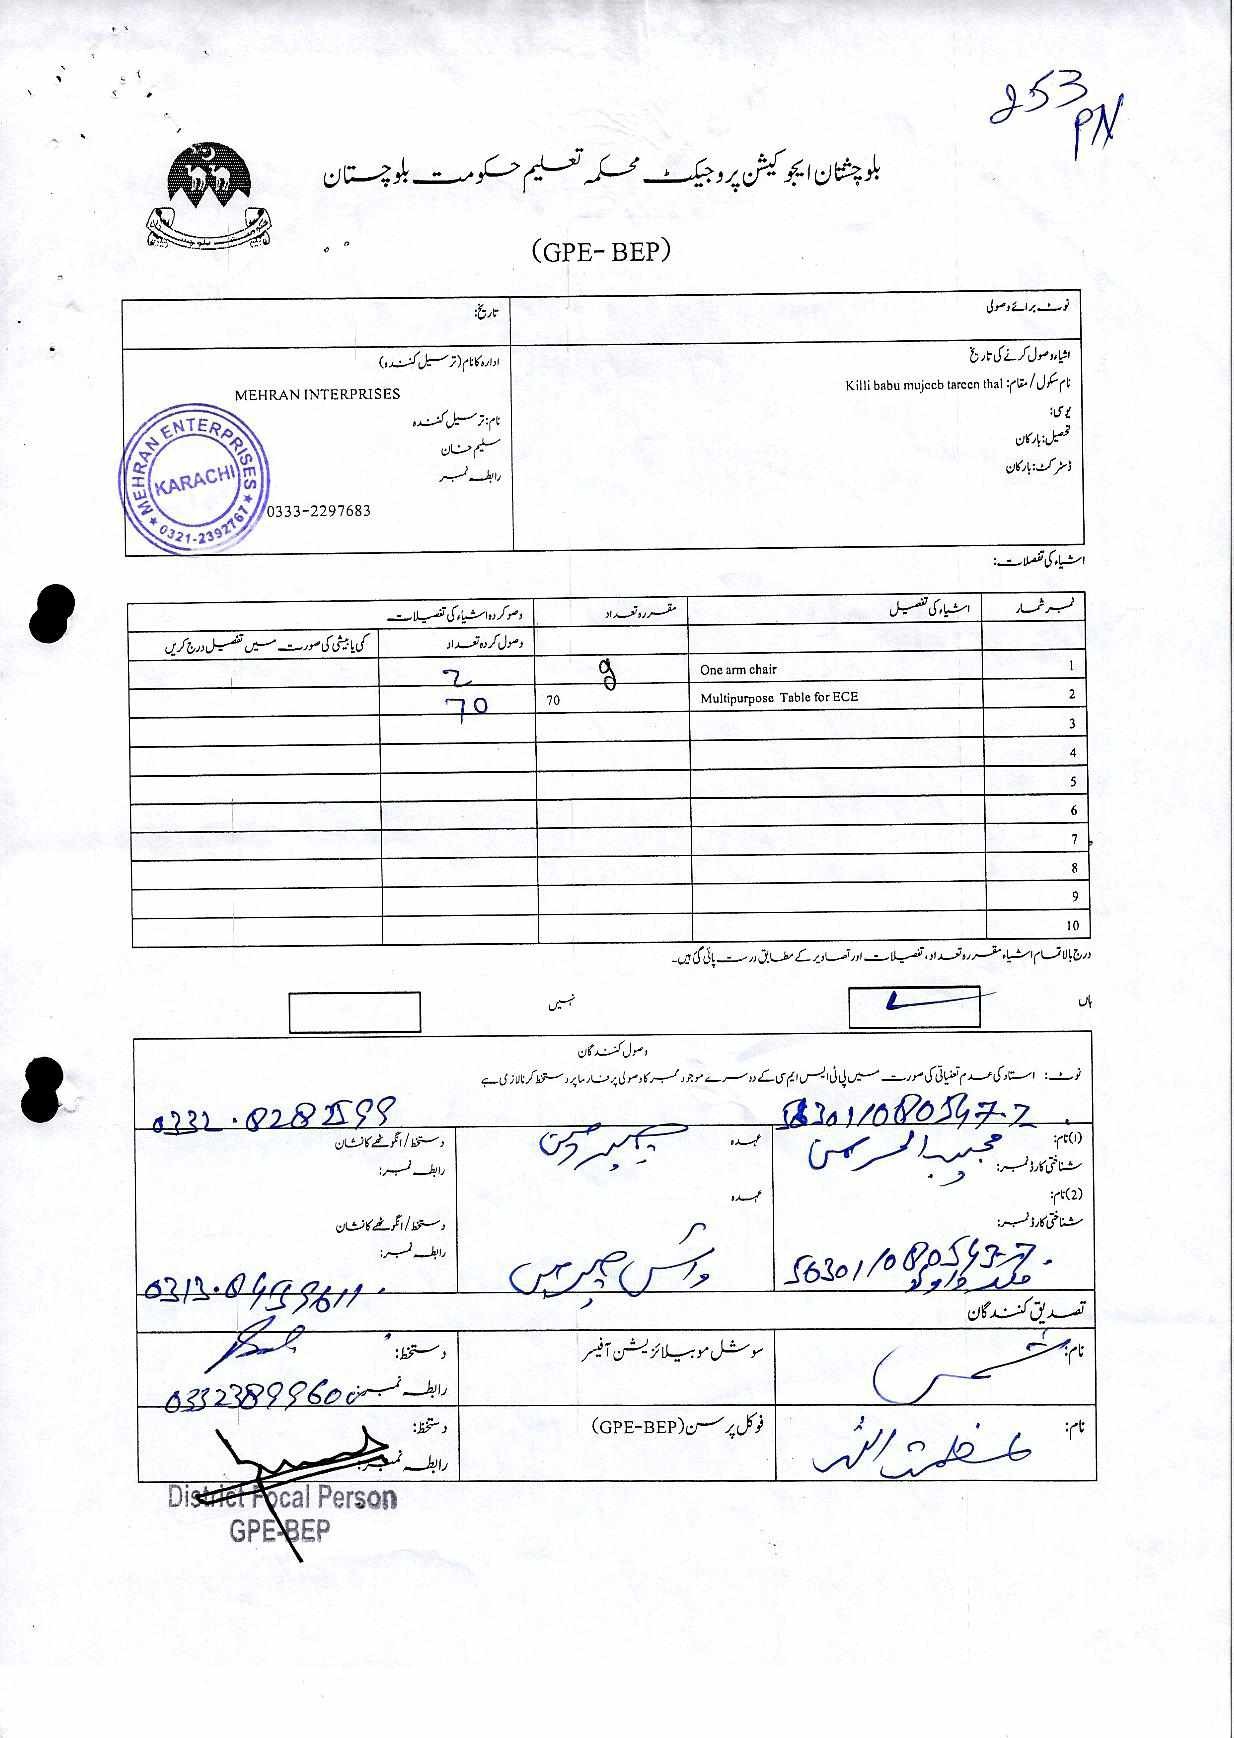 253
PN
بلوچستان ایجوکیشن پروجیکٹ محکمہ تعلیم حکومت بلوچستان
(GPE- BEP)
نوٹ برائے وصولی
تاریخ:
اشیاء وصول کرنے کی تاریخ
نام سکول / مقام: Killi babu mujeeb tareen thal
یوسی:
تحصیل: بارکان
ڈسٹرکٹ: بارکان
ادارہ کا نام (ترسیل کنندہ)
MEHRAN INTERPRISES
نام: ترسیل کنندہ
سلیم خان
رابطہ نمبر
0333-2297683
MEHRAN ENTERPRISES
KARACHI
0321-2392767
اشیاء کی تفصلات:
نمبر شمار اشیاء کی تفصیل مقررہ تعداد وصو کردہ اشیاء کی تفصیلات
وصول کردہ تعداد کمی یا بیشی کی صورت میں تفصیل درج کریں
1 One arm chair 2
2 Multipurpose Table for ECE 70 70
3
4
5
6
7
8
9
10
درج بالا تمام اشیاء مقررہ تعداد، تفصیلات اور تصاویر کے مطابق درست پائی گئی ہیں۔
ہاں
نہیں
وصول کنندگان
نوٹ: استاد کی عدم تعیناتی کی صورت میں پی ٹی ایس ایم سی کے دوسرے موجود ممبر کا وصولی پر فارما پر دستخط کرنا لازمی ہے
0332-8282599
(1) نام:
شناختی کارڈ نمبر:
عہدہ چیئرمین
دستخط / انگوٹھے کا نشان
رابطہ نمبر:
(2) نام:
شناختی کارڈ نمبر:
عہدہ
وائس چیئرمین
دستخط / انگوٹھے کا نشان
رابطہ نمبر:
تصدیق کنندگان
نام: شمس
سوشل موبیلائزیشن آفیسر
دستخط:
رابطہ نمبر 03323899600
نام: عظمت اللہ
فوکل پرسن (GPE-BEP)
دستخط:
رابطہ نمبر:
District Focal Person
GPE-BEP